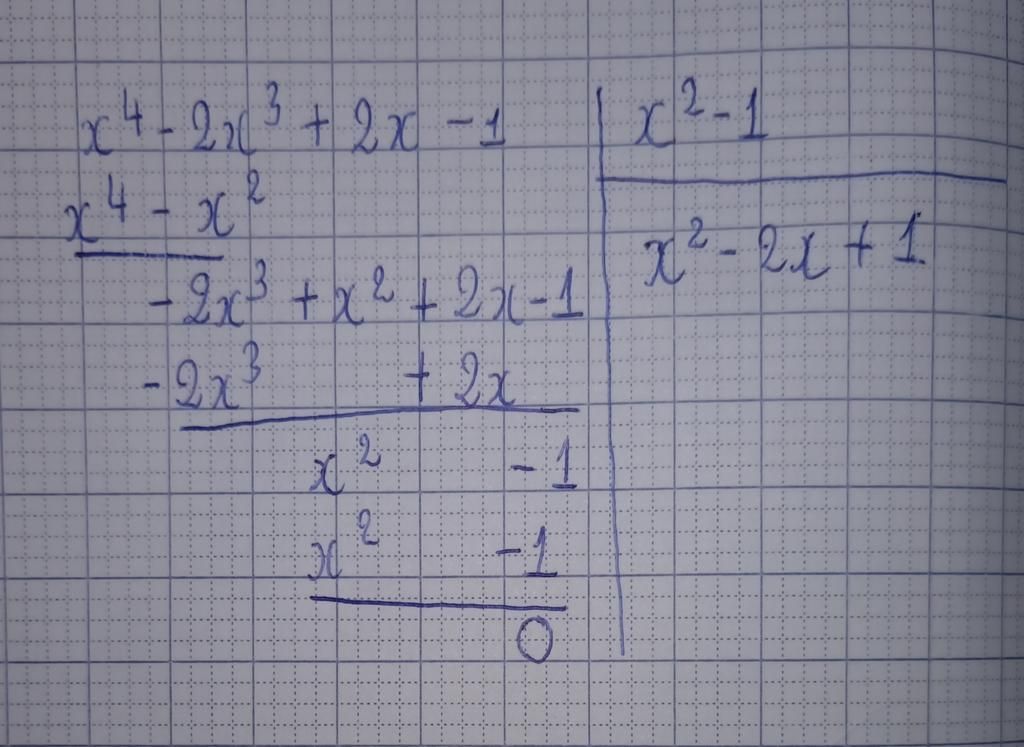 x⁴ - 2x³ + 2x - 1 | x² - 1
x⁴ - x²
x² - 2x + 1
- 2x³ + x² + 2x - 1
- 2x³ + 2x
x² - 1
x² - 1
0